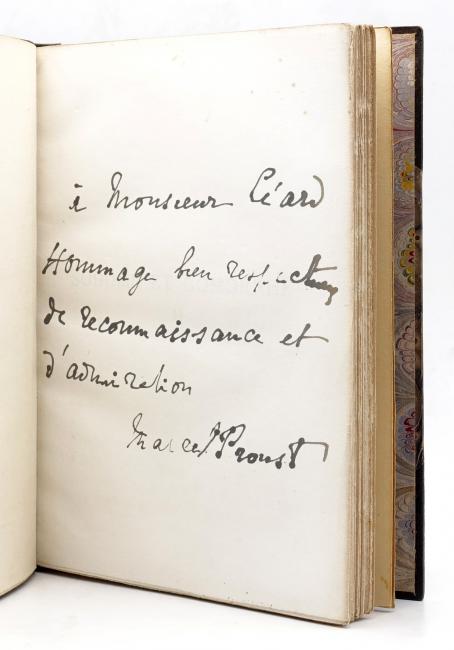 à Monsieur Céard
Hommage bien respectueux
de reconnaissance et
d'admiration
Marcel Proust